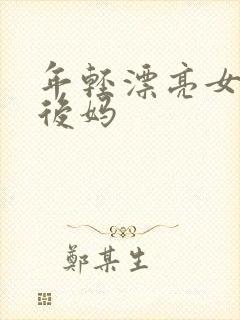 年轻漂亮女
後妈
鄭某生